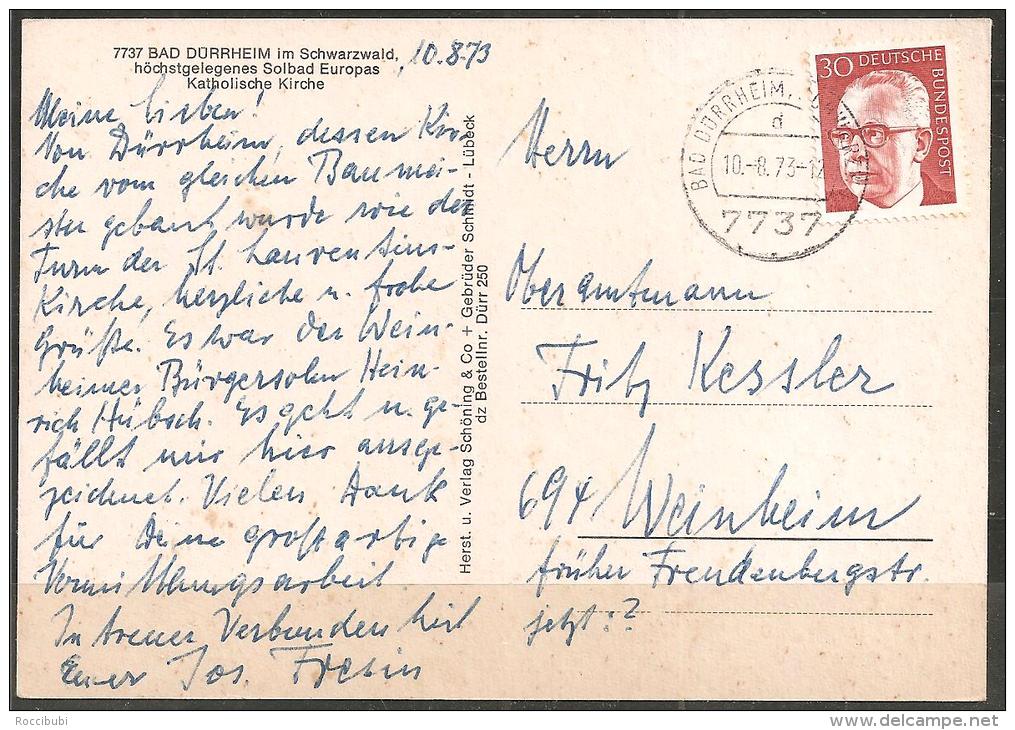 7737 BAD DÜRRHEIM im Schwarzwald,
höchstgelegenes Solbad Europas
Katholische Kirche
10.8.73
Meine Lieben!
Von Dürrheim, dessen Kir-
che vom gleichen Baumei-
ster gebaut wurde wie der
Turm der St. Laurentius-
Kirche, herzliche u. frohe
Grüße. Es war der Wein-
heimer Bürgersohn Hein-
rich Hübsch. Es geht u. ge-
fällt mir hier ausge-
zeichnet. Vielen Dank
für Deine großartige
Vermittlungsarbeit
In treuer Verbundenheit
Euer Jos.
Herst. u. Verlag Schöning & Co + Gebrüder Schmidt - Lübeck
dz Bestellnr. Dürr 250
BAD DÜRRHEIM,
d
10.-8.73-12
7737
30 DEUTSCHE BUNDESPOST
Herrn
Oberamtmann
Fritz Kessler
694 Weinheim
früher Freudenbergstr.
jetzt:?
Roccibubi
delcampe.net